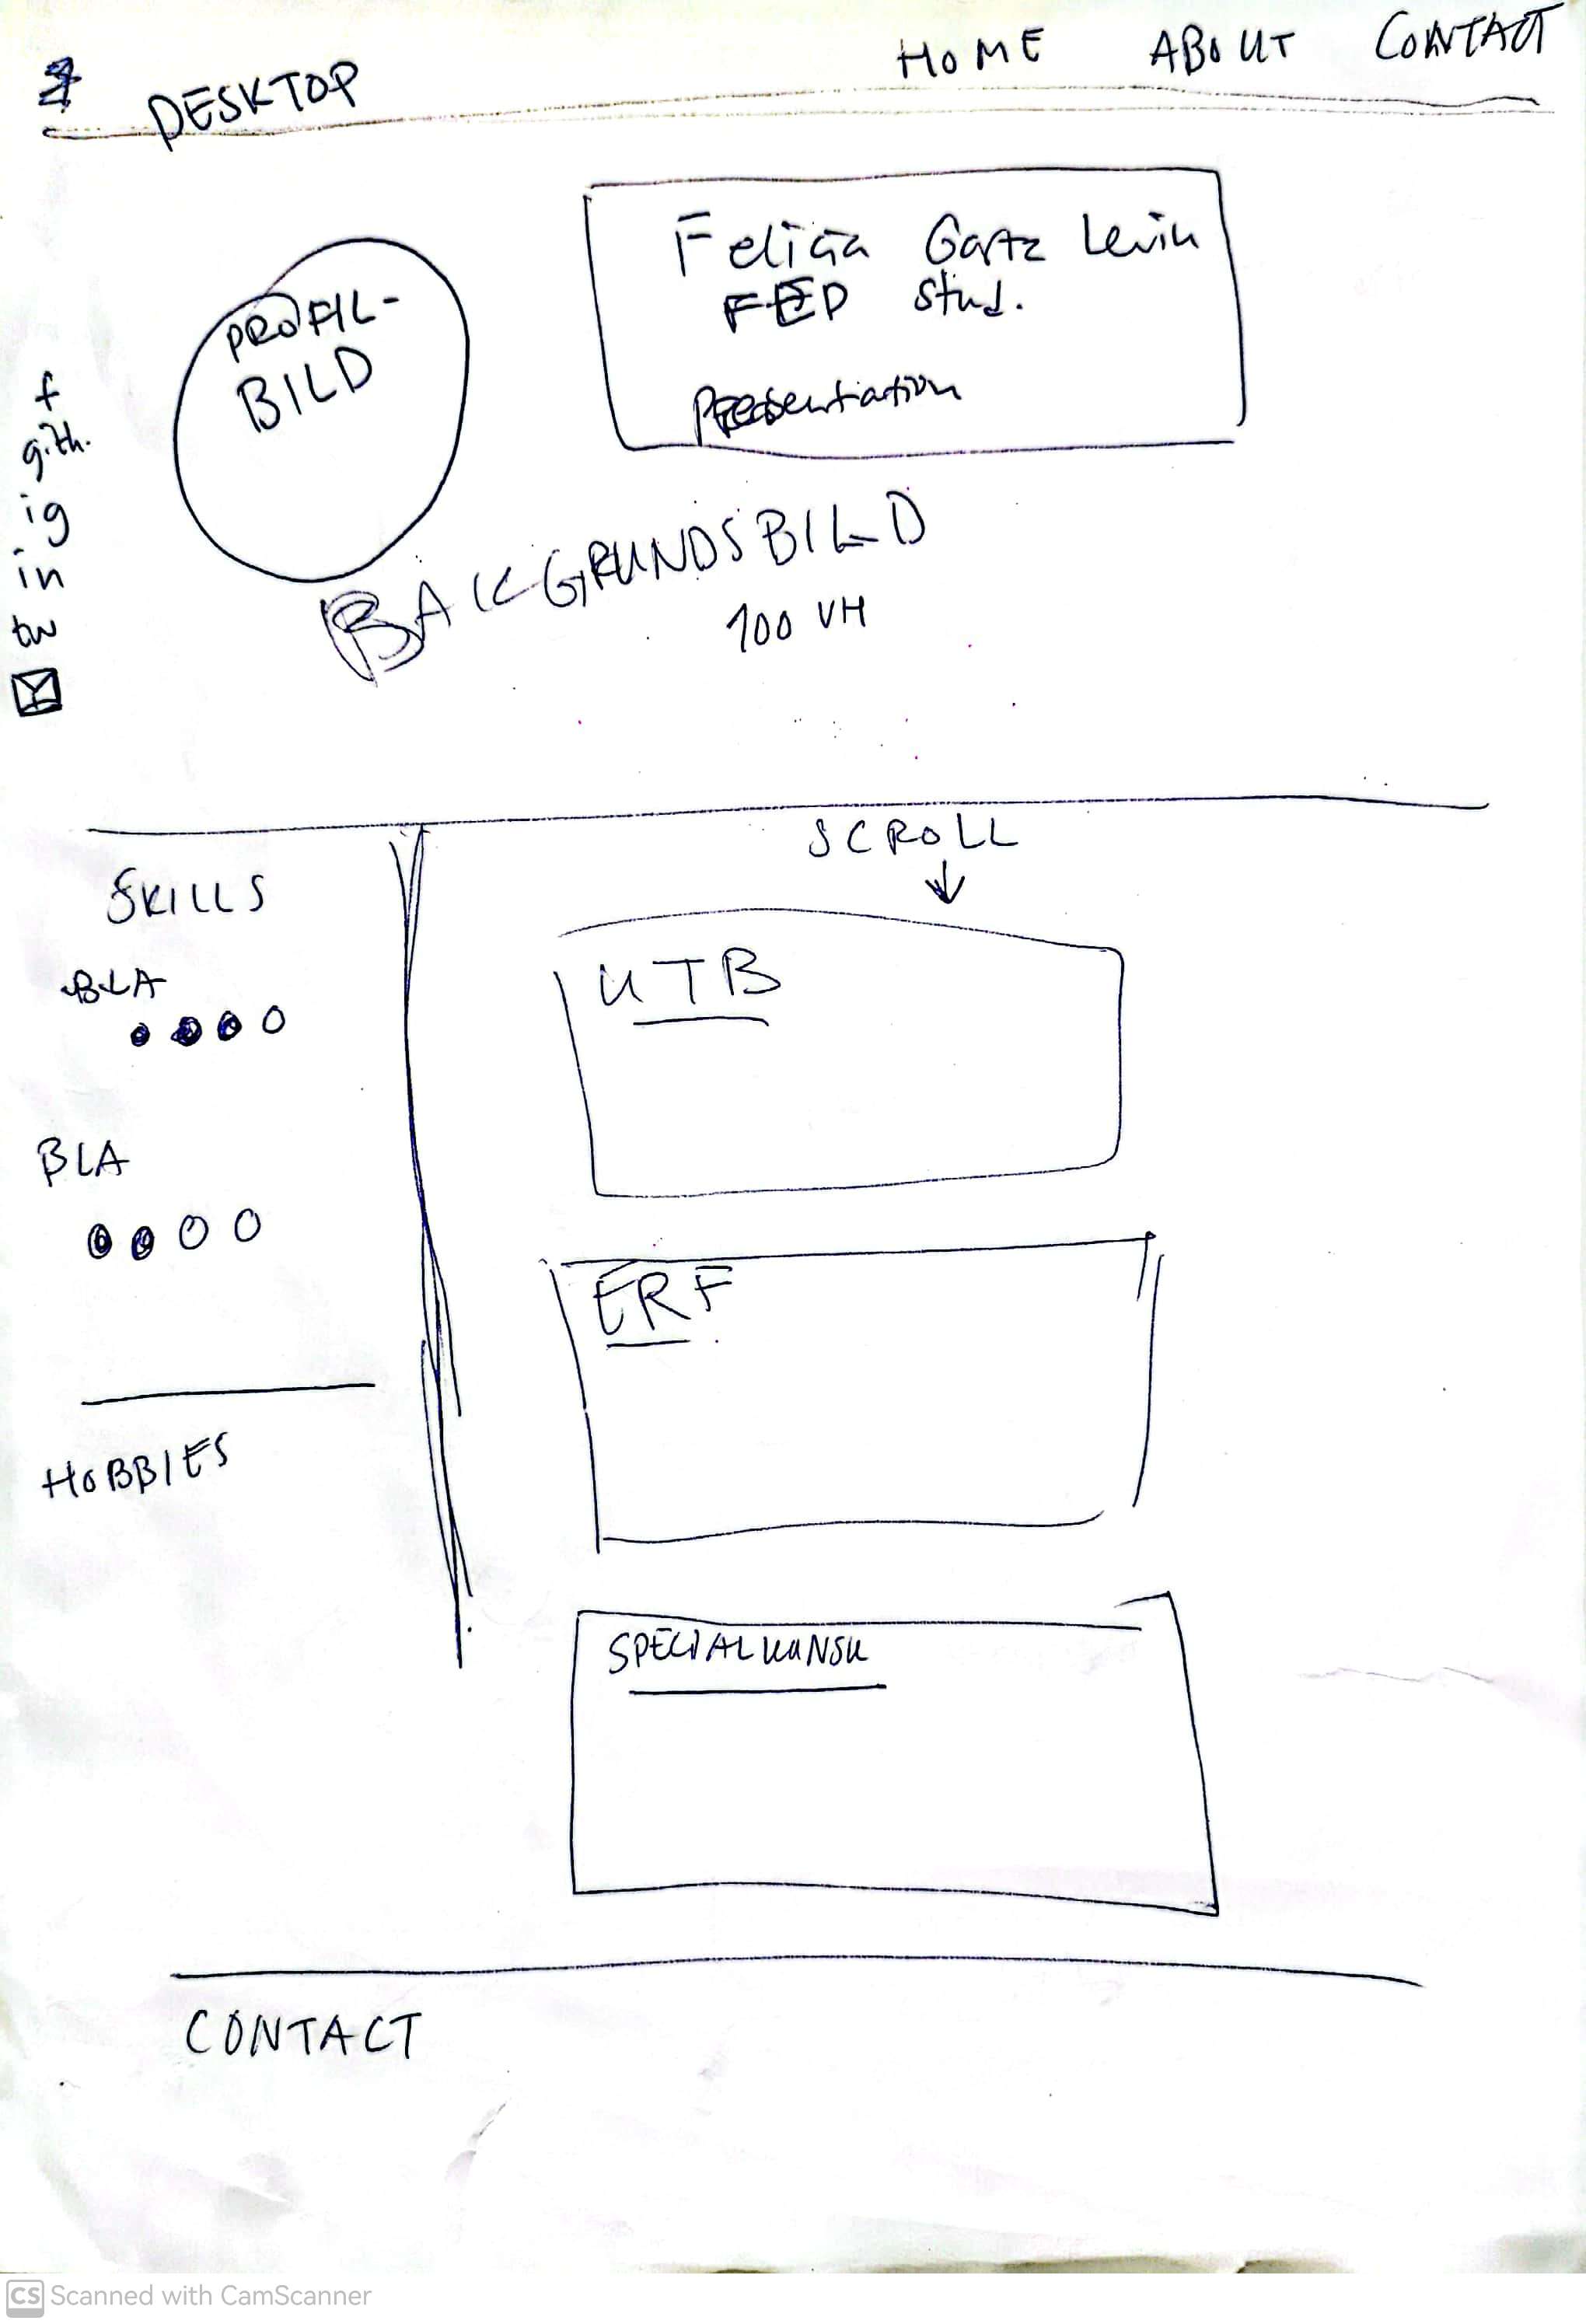 DESKTOP
HOME ABOUT CONTACT
PROFIL-
BILD
Felicia Gartz Levin
FED Stud.
Presentation
f
gith.
ig
in
tw
BAKGRUNDSBILD
100 VH
SCROLL
SKILLS
BLA
BLA
HOBBIES
UTB
ERF
SPECIALKUNSK
CONTACT
CS Scanned with CamScanner